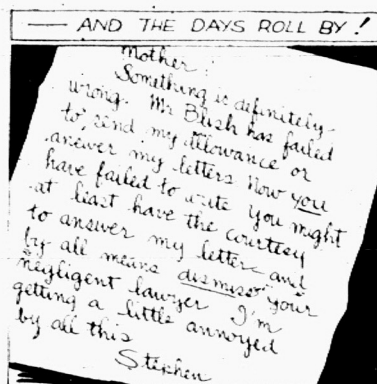 — AND THE DAYS ROLL BY!
Mother:
Something is definitely
wrong. Mr Blish has failed
to send my allowance or
answer my letters Now you
have failed to write You might
at least have the courtesy
to answer my letter and
by all means dismiss your
negligent lawyer I'm
getting a little annoyed
by all this
Stephen